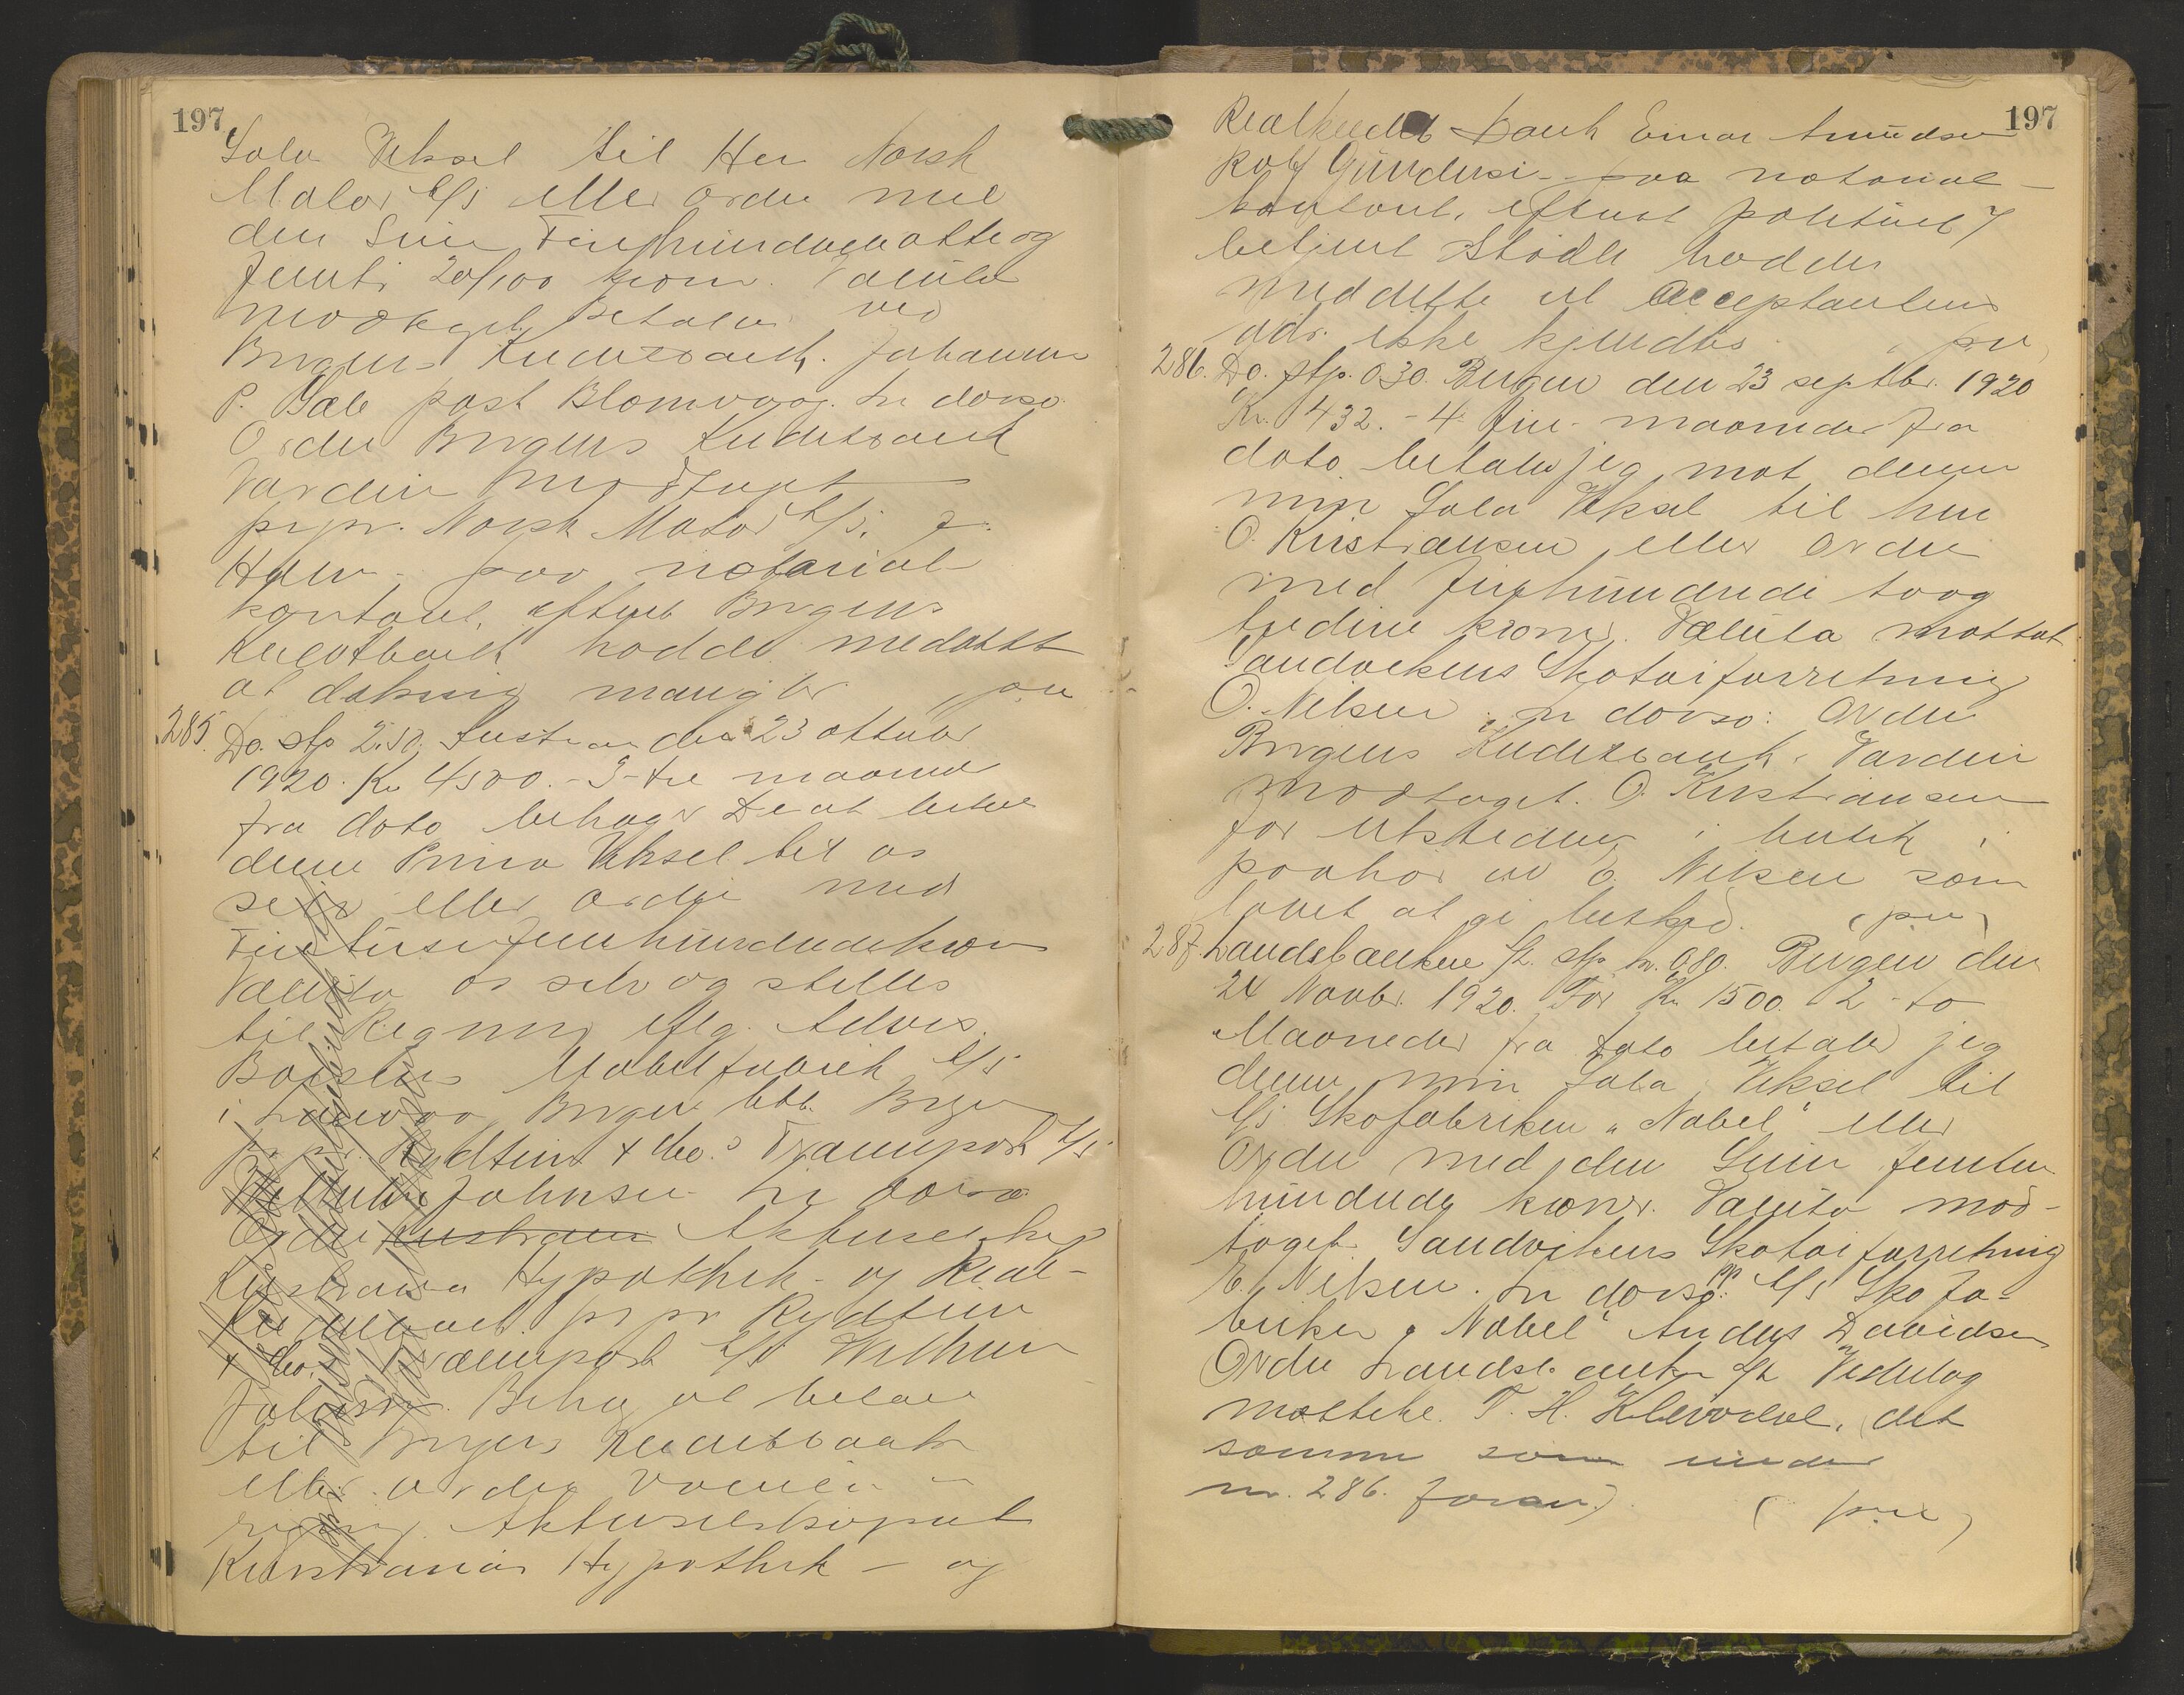 197
Sola Veksel til Her Norsk
Motor A/S eller ordre med
den Sum Firehundredeotteog
femti 20/100 kroner. Valuta
modtaget, Betales ved
Bergens Kreditbank. Johannes
P. Dale post Blomvaag. In dorso
Ordre Bergens Kreditbank
Værdien Modtaget
pr pr. Norsk Motor A/S. J.
paa notarial
kontoret, efterat Bergens
Kreditbank hadde meddelt
at dækning mangler. pre
285. Do. stp 2.50. den 23 oktober
1920. Kr 4500.- 3-tre maaneder
fra dato behager De at betale
denne Prima Veksel til os
selv eller ordre med
Firetusenfemhundredekroner
Valuta os selv og stilles
til Regning iflg. Advis.
Møbelfabrik A/S
i Bergen
pr pr. & Co.s Transport A/S
Wilhelm Johnsen. In dorso
Ordre Aktieselskap
Kristiania Hypothek- og Real-
kreditbank pr pr
& Co.s Transport A/S Wilhelm
Johnsen. Behag at betale
til Bergens Kreditbank
eller ordre Værdien i
regning. Aktieselskapet
Kristiania Hypothek - og
197
Realkredit Bank Einar Amundsen
Rolf Gundersen - paa notarial-
kontoret, efterat politiet
betjent hadde
meddelt at Acceptantens
adr. ikke kjendtes. pre
286. Do. stp. 0.30. Bergen den 23 septbr. 1920
Kr. 432.- 4 Fire- maaneder fra
dato betaler jeg mot denne
min Sola Veksel til herr
O. Kristiansen eller ordre
med Firehundrede toog
tredive kroner. Valuta mottat
Sandvikens Skotøiforretning
O. Nilsen. In dorso: Ordre
Bergens Kreditbank. Værdien
modtaget. O. Kristiansen
for Utstederen i butik i
paahør av O. Nilsen som
lovet at gi beskjed. (pre)
287. Landsbanken A/L stp kr. 0.80. Bergen den
24 Novbr. 1920. For Kr. 1500. 2 - to
Maaneder fra Dato betaler jeg
denne min Sola Veksel til
A/S Skofabriken "Nobel" eller
Ordre med den Sum femten
hundrede kroner. Valuta mod-
taget. Sandvikens Skotøiforretning
O. Nilsen. In dorso: pp A/S Skofa-
briken "Nobel" Anders Davidsen
Ordre Landsbanken A/L Vederlag
mottat. T. H. det
samme som under
nr. 286. foran). (pre)